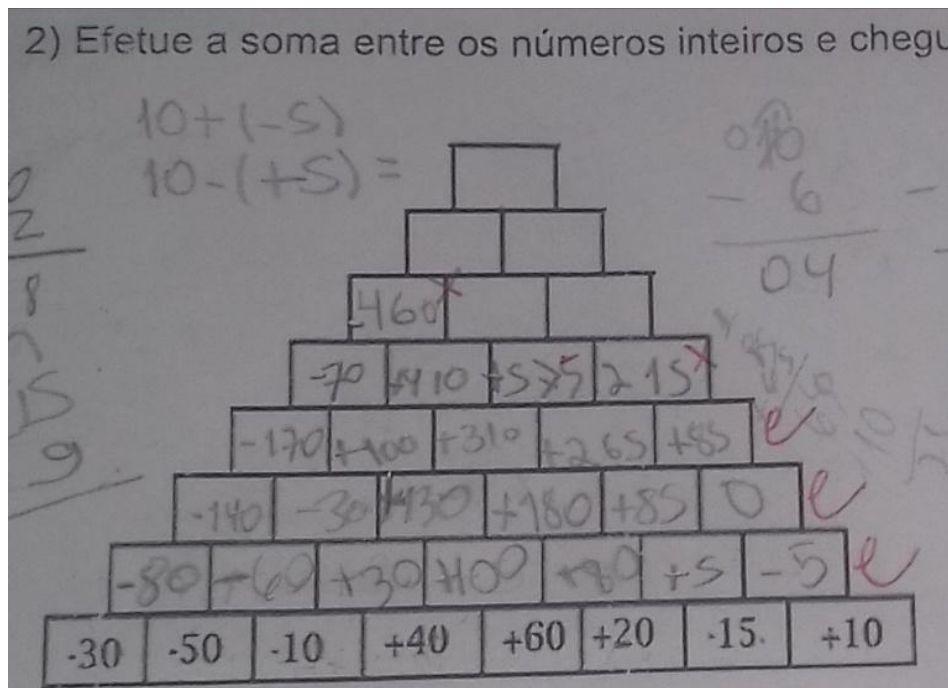 2) Efetue a soma entre os números inteiros e chegu
10+(-5)
10-(+5)=
2
8
5
9
- 6
04
-460 x
-70 +410 +575 215 x
-170 +100 +310 +265 +85 e
-140 -30 +130 +180 +85 0 e
-80 -60 +30 +100 +80 +5 -5 e
-30 -50 -10 +40 +60 +20 -15. +10